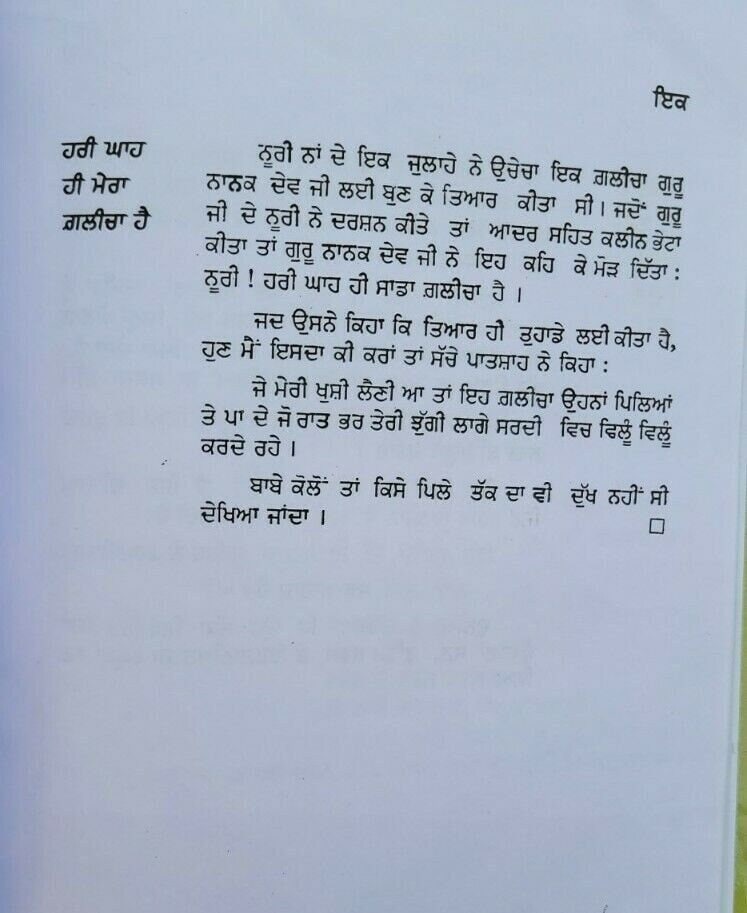 ਇਕ
ਹਰੀ ਘਾਹ
ਹੀ ਮੇਰਾ
ਗ਼ਲੀਚਾ ਹੈ
ਨੂਰੀ ਨਾਂ ਦੇ ਇਕ ਜੁਲਾਹੇ ਨੇ ਉਚੇਚਾ ਇਕ ਗ਼ਲੀਚਾ ਗੁਰੂ
ਨਾਨਕ ਦੇਵ ਜੀ ਲਈ ਬੁਣ ਕੇ ਤਿਆਰ ਕੀਤਾ ਸੀ। ਜਦੋਂ ਗੁਰੂ
ਜੀ ਦੇ ਨੂਰੀ ਨੇ ਦਰਸ਼ਨ ਕੀਤੇ ਤਾਂ ਆਦਰ ਸਹਿਤ ਕਲੀਨ ਭੇਟਾ
ਕੀਤਾ ਤਾਂ ਗੁਰੂ ਨਾਨਕ ਦੇਵ ਜੀ ਨੇ ਇਹ ਕਹਿ ਕੇ ਮੋੜ ਦਿੱਤਾ :
ਨੂਰੀ ! ਹਰੀ ਘਾਹ ਹੀ ਸਾਡਾ ਗ਼ਲੀਚਾ ਹੈ ।
ਜਦ ਉਸਨੇ ਕਿਹਾ ਕਿ ਤਿਆਰ ਹੀ ਤੁਹਾਡੇ ਲਈ ਕੀਤਾ ਹੈ,
ਹੁਣ ਮੈਂ ਇਸਦਾ ਕੀ ਕਰਾਂ ਤਾਂ ਸੱਚੇ ਪਾਤਸ਼ਾਹ ਨੇ ਕਿਹਾ :
ਜੇ ਮੇਰੀ ਖੁਸ਼ੀ ਲੈਣੀ ਆ ਤਾਂ ਇਹ ਗ਼ਲੀਚਾ ਉਹਨਾਂ ਪਿਲਿਆਂ
ਤੇ ਪਾ ਦੇ ਜੋ ਰਾਤ ਭਰ ਤੇਰੀ ਝੁੱਗੀ ਲਾਗੇ ਸਰਦੀ ਵਿਚ ਵਿਲੂੰ ਵਿਲੂੰ
ਕਰਦੇ ਰਹੇ ।
ਬਾਬੇ ਕੋਲੋਂ ਤਾਂ ਕਿਸੇ ਪਿਲੇ ਤੱਕ ਦਾ ਵੀ ਦੁੱਖ ਨਹੀਂ ਸੀ
ਦੇਖਿਆ ਜਾਂਦਾ । □